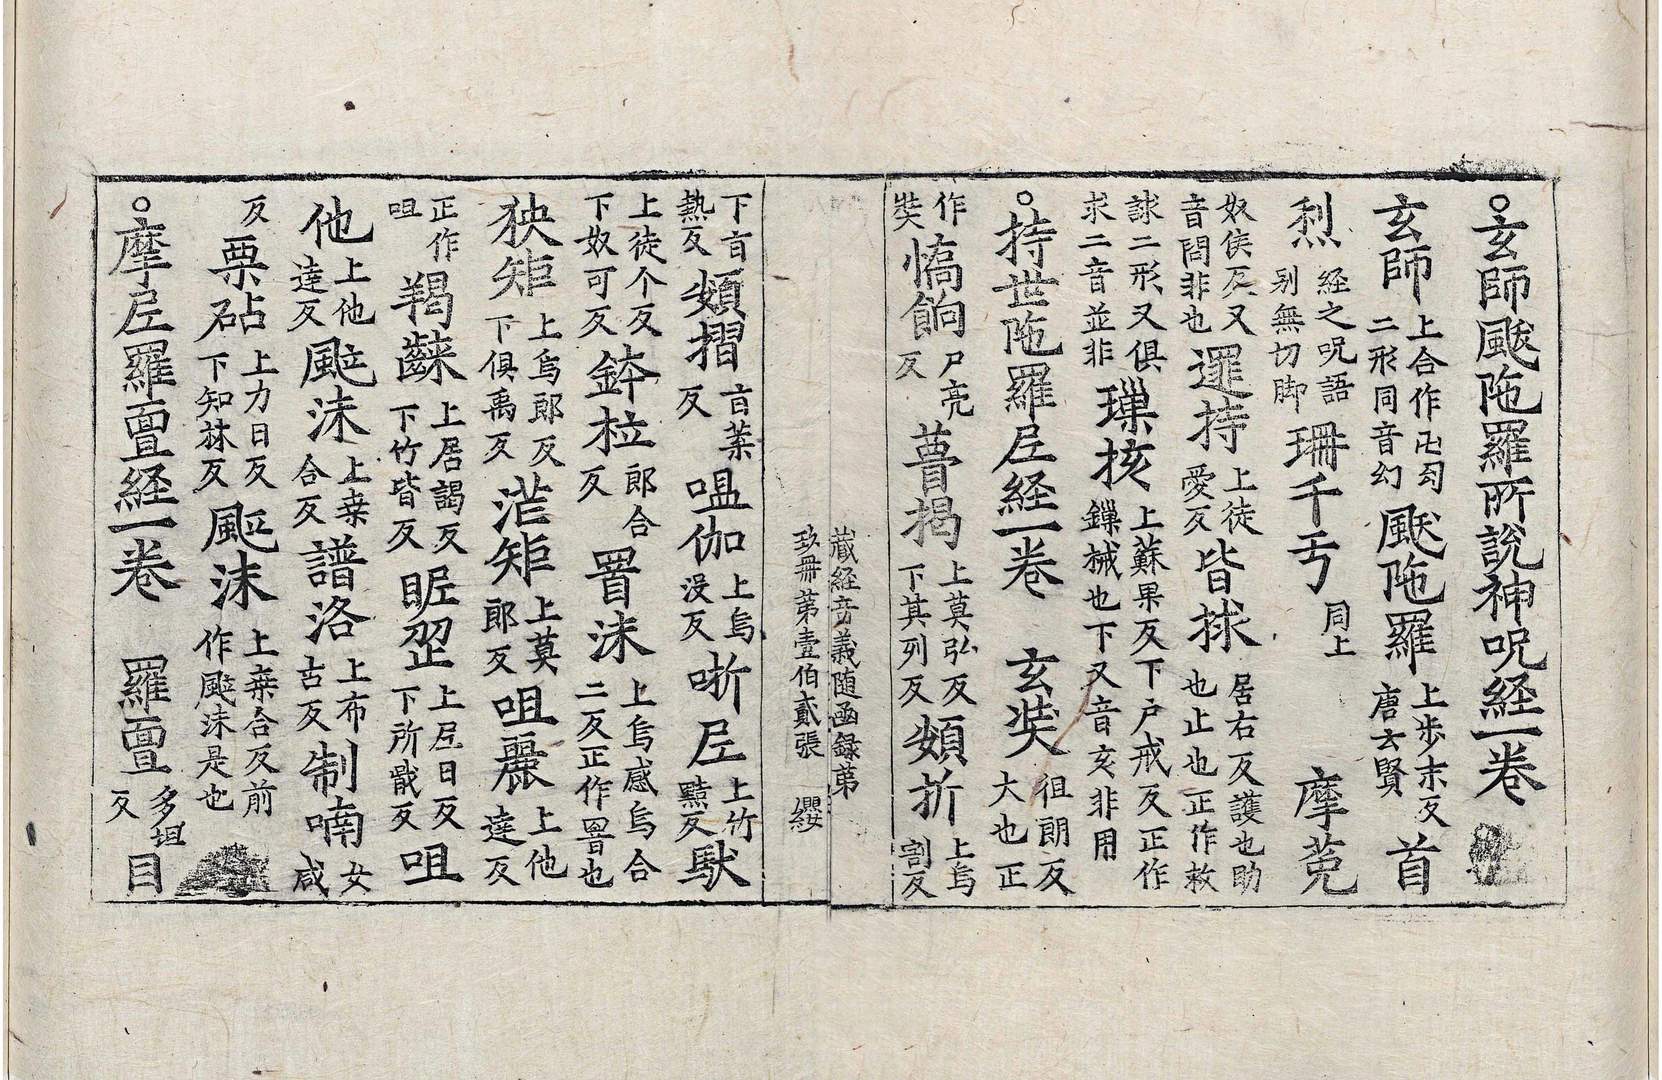 ○玄師颰陁羅所說神呪経一卷
玄師上合作𠃵匃二形同音幻颰陁羅上步末反唐云賢首
烮経之呪語別無切脚珊千丂同上摩菟
奴侯反又音閻非也遝持上徒愛反皆捄居右反護也助也止也正作救
𧦧二形又俱求二音並非璅核上蘇果反下戶戒反正作鏁械也下又音亥非用
○持世陁羅𡰱経一卷 玄奘徂朗反大也正
作奘㥬餉尸亮反瞢揭上莫弘反下其列反頞折上烏割反
藏経音義随函録苐
玖冊苐壹伯貳張 纓
下音熱反頞摺音葉反嗢伽上烏没反哳𡰱上竹黠反馱
上徒个反下奴可反鉢柆郎合反罯沫上烏感烏合二反正作罯也
狹矩上烏郎反下俱禹反茫矩上莫郎反咀麗上他達反
正作咀羯𪘨上居謁反下竹皆反昵𠯗上𡰱日反下所戢反咀
他上他達反颯沫上桒合反譜洛上布古反制喃女咸
反栗砧上力日反下知林反颯沫上桒合反前作颯沫是也
○摩𡰱羅亶経一卷 羅亶多坦反目